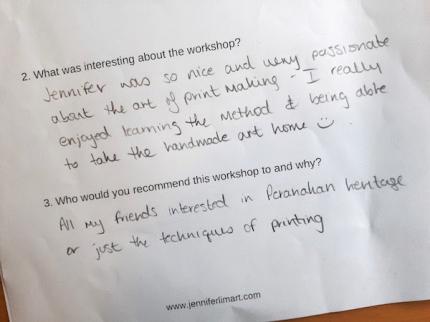 2. What was interesting about the workshop?
Jennifer was so nice and very passionate
about the art of print making - I really
enjoyed learning the method & being able
to take the handmade art home ☺ .
3. Who would you recommend this workshop to and why?
All my friends interested in Peranakan heritage
or just the techniques of printing
www.jenniferlimart.com